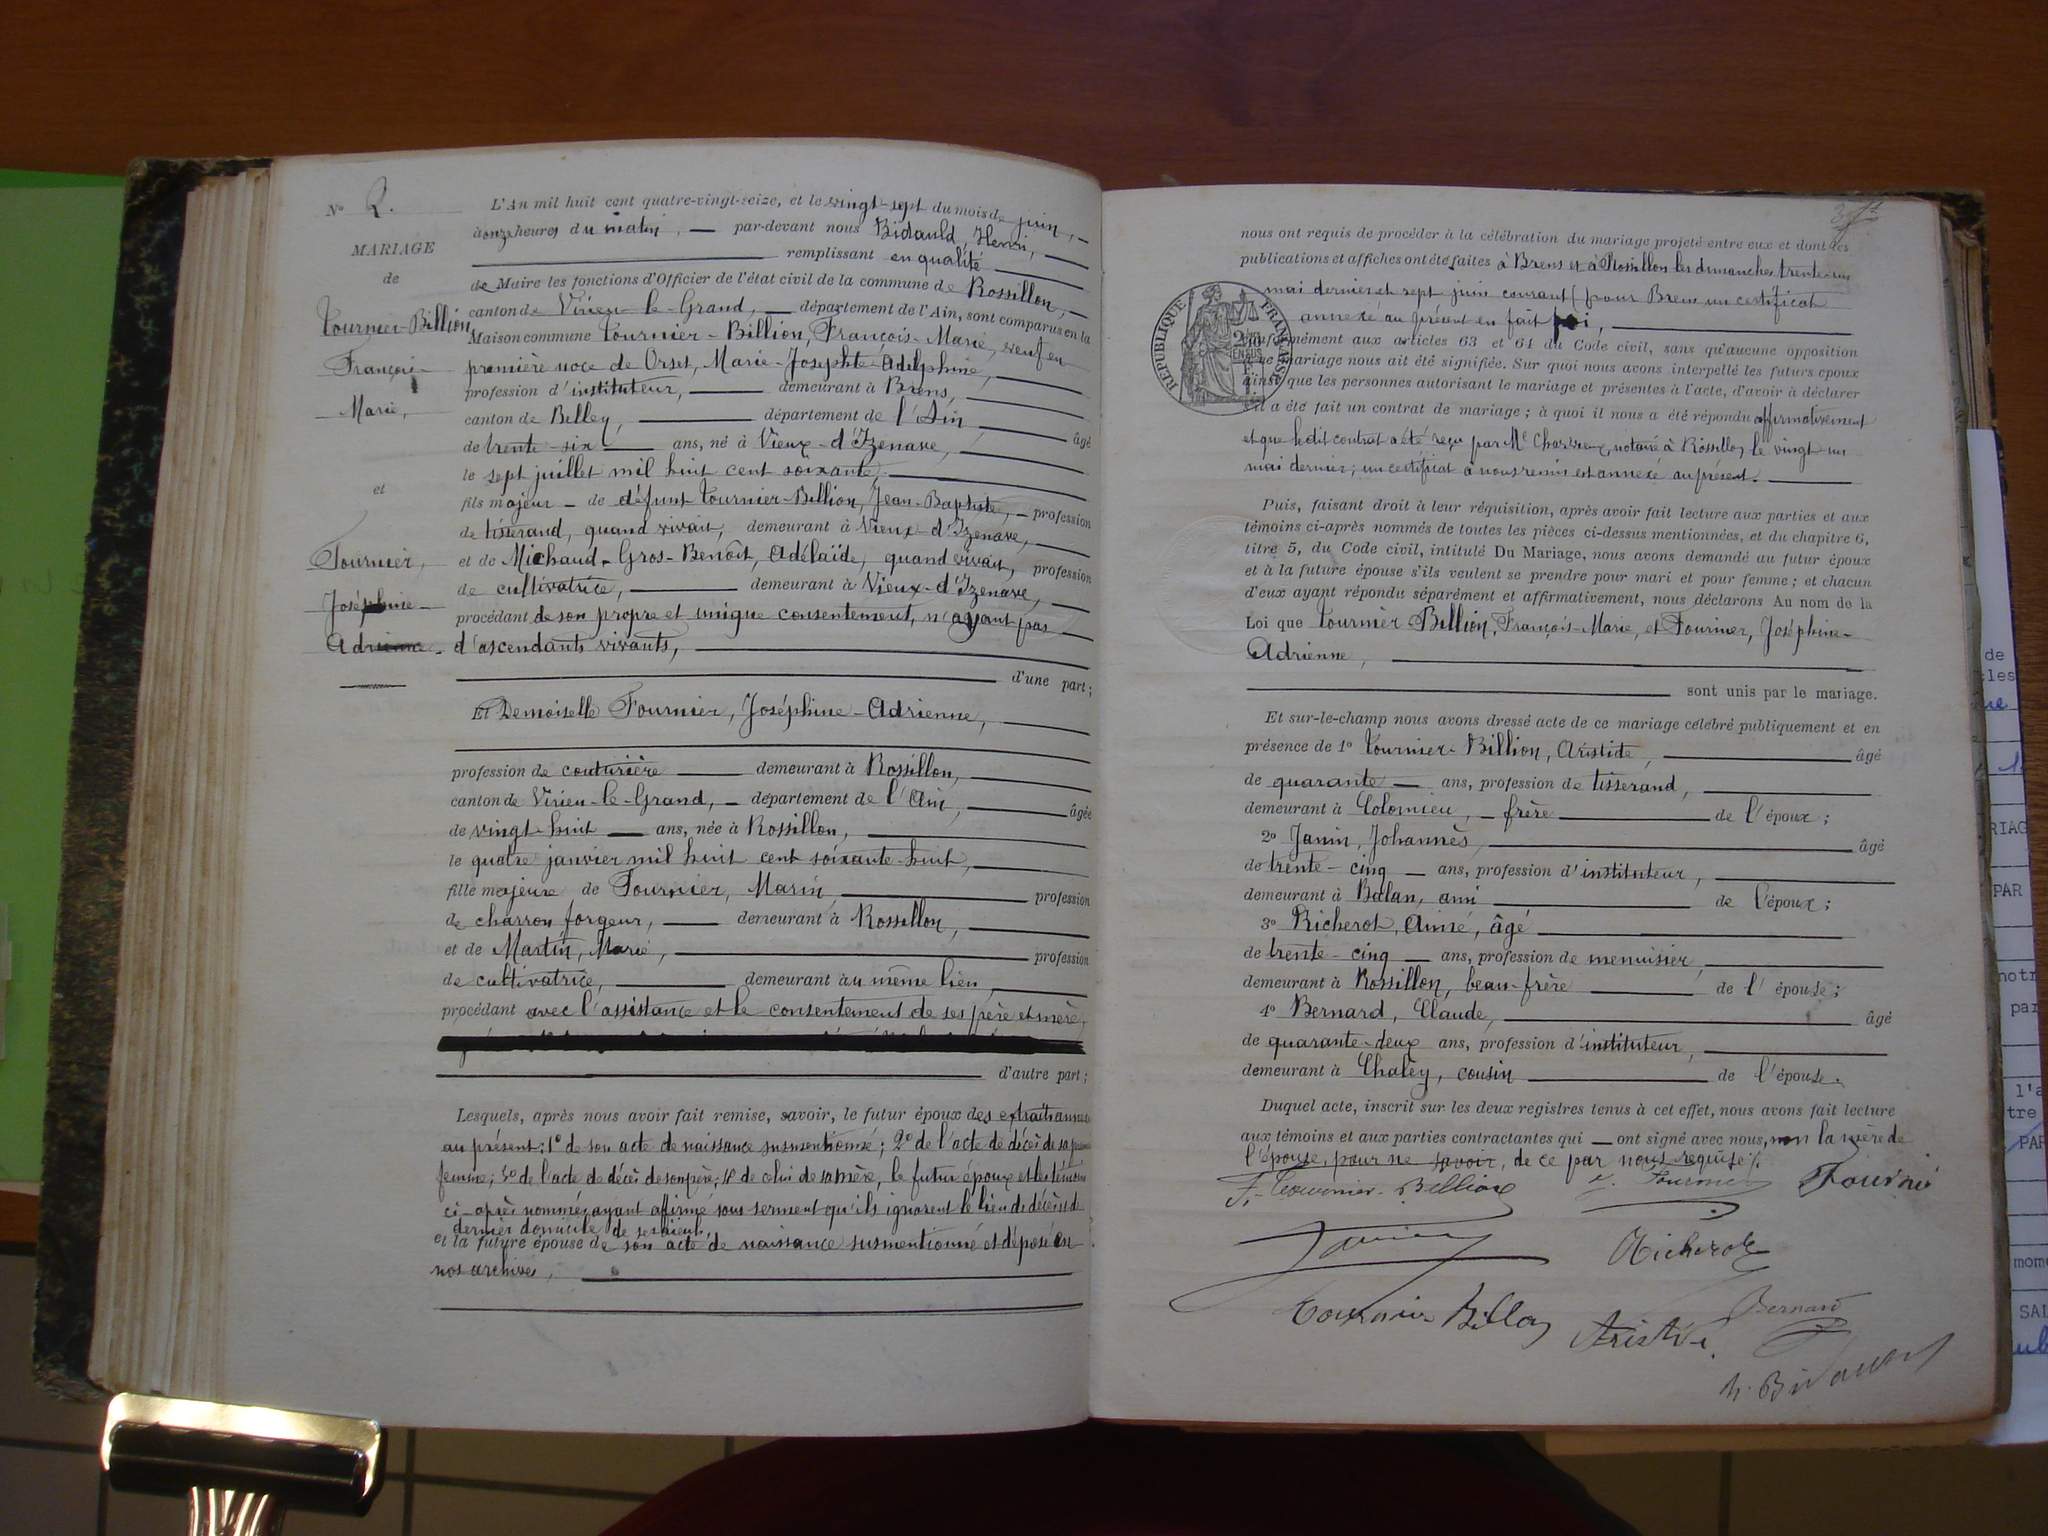 No 2.
MARIAGE
de
Tournier-Billion,
François-
Marie,
et
Fournier,
Joséphine-
Adrienne.
L'An mil huit cent quatre-vingt-seize, et le vingt-sept du mois de juin,
à onze heures du matin, par-devant nous Bidauld, Henri,
remplissant en qualité
de Maire les fonctions d'Officier de l'état civil de la commune de Rossillon,
canton de Virieu-le-Grand, département de l'Ain, sont comparus en la
Maison commune Tournier-Billion, François-Marie, veuf en
première noce de Orset, Marie-Josephte-Adelphine,
profession d'instituteur, demeurant à Brens,
canton de Belley, département de l'Ain, âgé
de trente-six ans, né à Vieux-d'Izenave,
le sept juillet mil huit cent soixante,
fils majeur de défunt Tournier-Billion, Jean-Baptiste, profession
de tisserand, quand vivait, demeurant à Vieux-d'Izenave,
et de Michaud-Gros-Benoît, Adélaïde, quand vivait, profession
de cultivatrice, demeurant à Vieux-d'Izenave,
procédant de son propre et unique consentement, n'ayant pas
d'ascendants vivants,
d'une part;
Et Demoiselle Fournier, Joséphine-Adrienne,
profession de couturière demeurant à Rossillon,
canton de Virieu-le-Grand, département de l'Ain, âgée
de vingt-huit ans, née à Rossillon,
le quatre janvier mil huit cent soixante-huit,
fille majeure de Fournier, Marin, profession
de charron forgeur, demeurant à Rossillon,
et de Martin, Marie, profession
de cultivatrice, demeurant au même lieu,
procédant avec l'assistance et le consentement de ses père et mère,
d'autre part;
Lesquels, après nous avoir fait remise, savoir, le futur époux des extraits annexés
au présent: 1° de son acte de naissance susmentionné; 2° de l'acte de décès de sa première
femme; 3° de l'acte de décès de son père; 4° de celui de sa mère, le futur époux et les témoins
ci-après nommés ayant affirmé sous serment qu'ils ignorent le lieu de décès et de
dernier domicile de ses aïeuls,
et la future épouse de son acte de naissance susmentionné et déposé en
nos archives,
nous ont requis de procéder à la célébration du mariage projeté entre eux et dont les
publications et affiches ont été faites à Brens et à Rossillon les dimanches trente-un
mai dernier et sept juin courant (pour Brens un certificat
annexé au présent en fait foi,
RÉPUBLIQUE FRANÇAISE
conformément aux articles 63 et 64 du Code civil, sans qu'aucune opposition
audit mariage nous ait été signifiée. Sur quoi nous avons interpellé les futurs époux
ainsi que les personnes autorisant le mariage et présentes à l'acte, d'avoir à déclarer
s'il a été fait un contrat de mariage; à quoi il nous a été répondu affirmativement
et que ledit contrat a été reçu par Me notaire à Rossillon le vingt un
mai dernier; un certificat à nous remis est annexé au présent.
Puis, faisant droit à leur réquisition, après avoir fait lecture aux parties et aux
témoins ci-après nommés de toutes les pièces ci-dessus mentionnées, et du chapitre 6,
titre 5, du Code civil, intitulé Du Mariage, nous avons demandé au futur époux
et à la future épouse s'ils veulent se prendre pour mari et pour femme; et chacun
d'eux ayant répondu séparément et affirmativement, nous déclarons Au nom de la
Loi que Tournier Billion, François-Marie, et Fournier, Joséphine-
Adrienne,
sont unis par le mariage.
Et sur-le-champ nous avons dressé acte de ce mariage célébré publiquement et en
présence de 1° Tournier-Billion, Aristide, âgé
de quarante ans, profession de tisserand,
demeurant à Colomieu, frère de l'époux;
2° Janin, Johannès, âgé
de trente-cinq ans, profession d'instituteur,
demeurant à Balan, ami de l'époux;
3° Richerot, Aimé, âgé
de trente-cinq ans, profession de menuisier,
demeurant à Rossillon, beau-frère de l'épouse;
4° Bernard, Claude, âgé
de quarante-deux ans, profession d'instituteur,
demeurant à Chaley, cousin de l'épouse.
Duquel acte, inscrit sur les deux registres tenus à cet effet, nous avons fait lecture
aux témoins et aux parties contractantes qui ont signé avec nous, non la mère de
l'épouse, pour ne savoir, de ce par nous requise.
F. Tournier-Billion J. Fournier Fournié
Janin Richerot
Tournier Billon Aristide Bernard
h. Bidauld